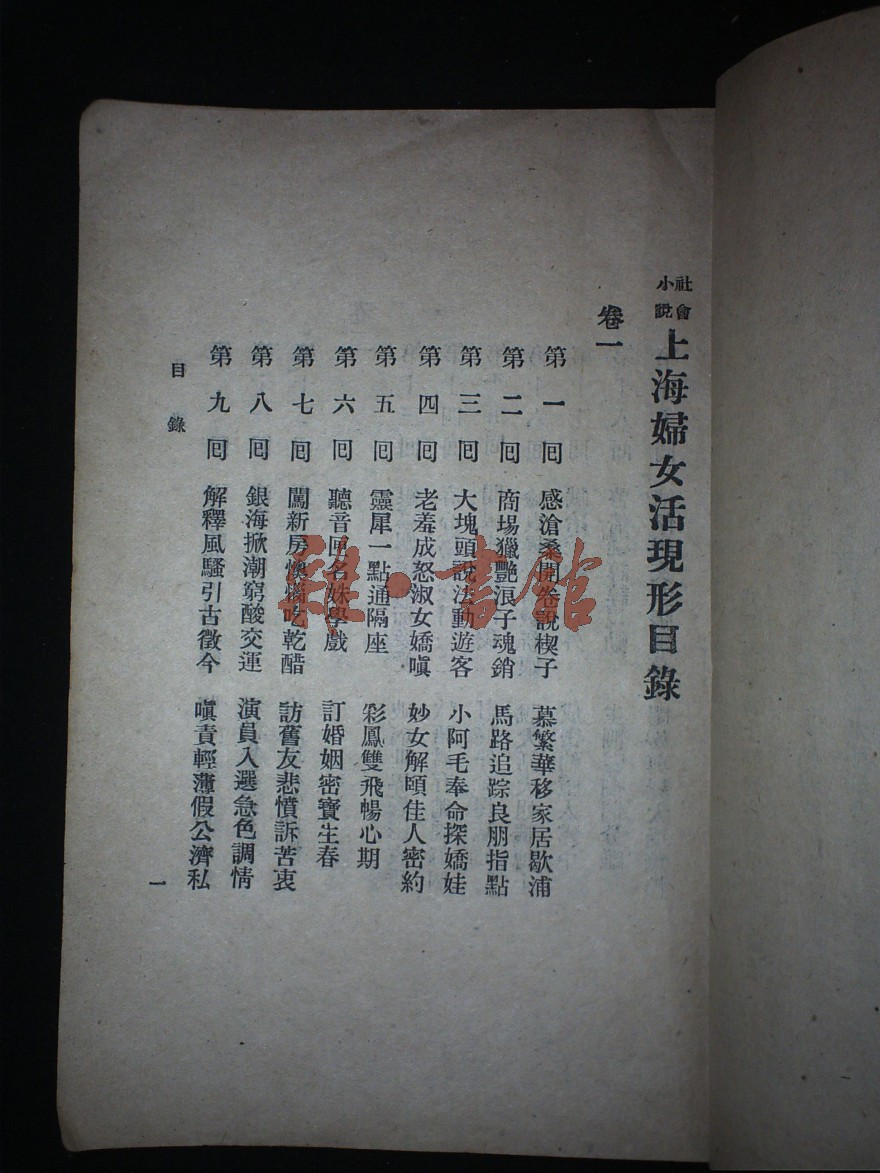 社會小說
上海婦女活現形目錄
卷一
第一回 感滄桑開卷說楔子 慕繁華移家居歇浦
第二回 商場獵艷浪子魂銷 馬路追踪良朋指點
第三回 大塊頭說法動遊客 小阿毛奉命探嬌娃
第四回 老羞成怒淑女嬌嗔 妙女解頤佳人密約
第五回 靈犀一點通隔座 彩鳳雙飛暢心期
第六回 聽音匣名姝學戲 訂婚姻密寶生春
第七回 鬧新房懊惱吃乾醋 訪舊友悲憤訴苦衷
第八回 銀海掀潮窮酸交運 演員入選急色調情
第九回 解釋風騷引古徵今 嗔責輕薄假公濟私
目錄
一
雜·書館